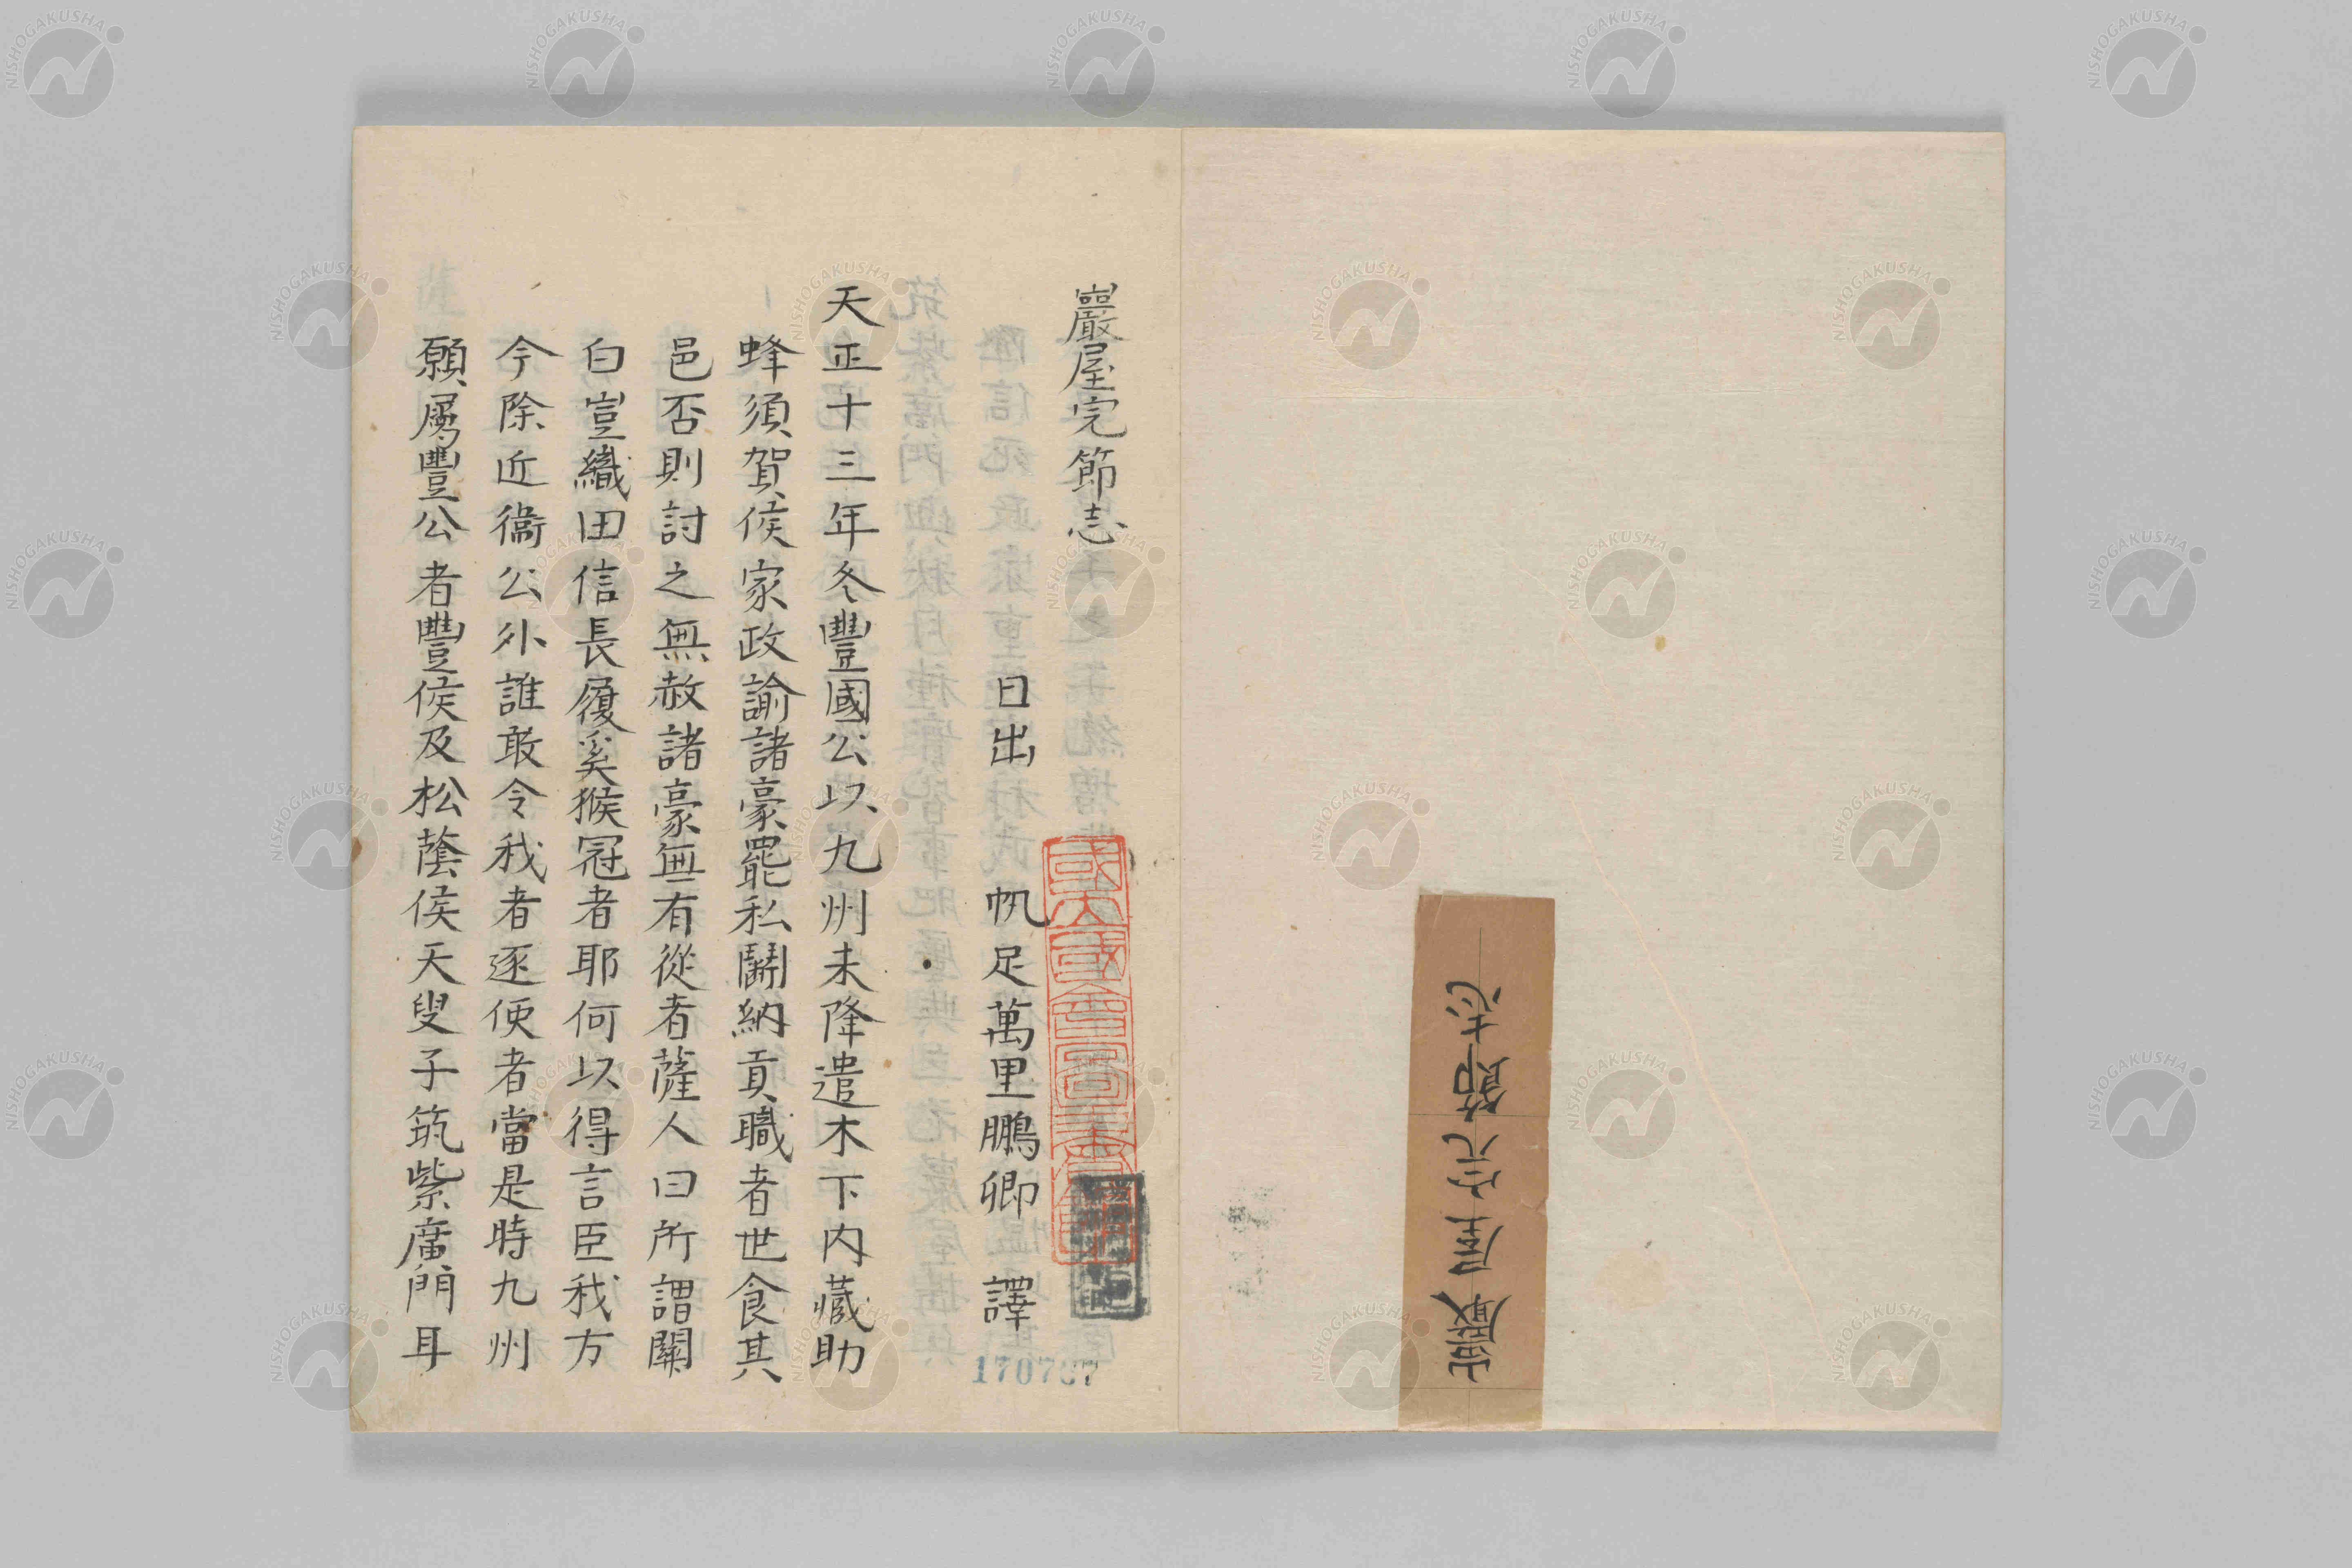 巖屋完節志
巖屋完節志
日出 帆足萬里鵬卿 譯
天正十三年冬豐國公以九州未降遣木下内藏助
蜂須賀侯家政諭諸豪罷私鬪納貢職者世食其
邑否則討之無赦諸豪無有從者薩人曰所謂關
白豈織田信長履奚猴冠者耶何以得言臣我方
今除近衞公外誰敢令我者逐使者當是時九州
願屬豐公者豐侯及松蔭侯天叟子筑紫廣門耳
NISHOGAKUSHA